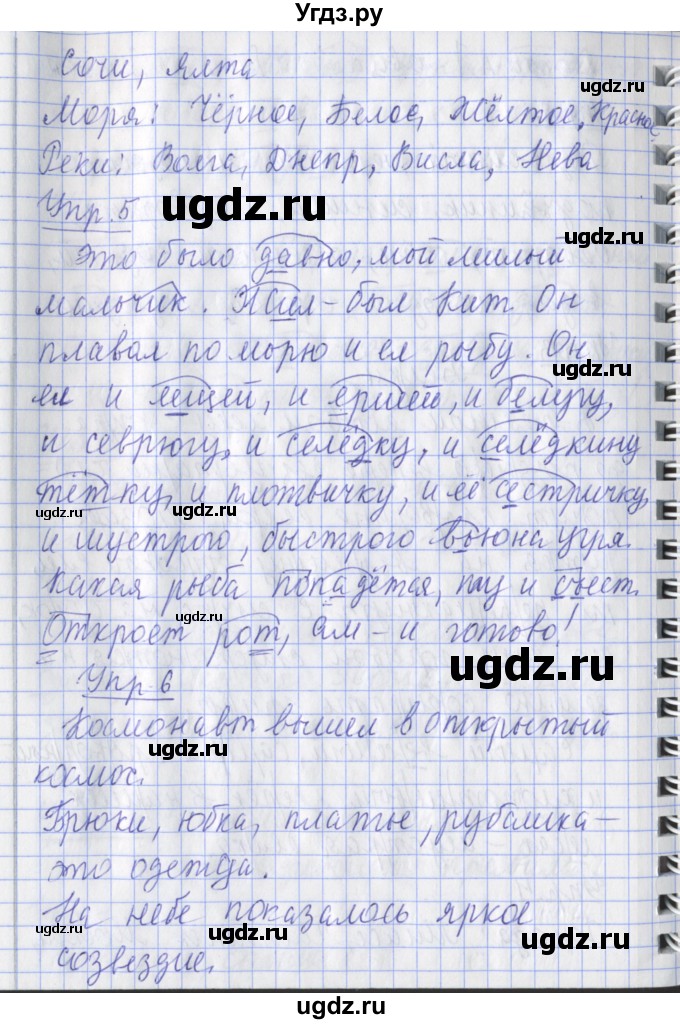 Угдз.ру
Сочи, Ялта
Моря: Чёрное, Белое, Жёлтое, Красное
Реки: Волга, Днепр, Висла, Нева
Упр. 5
ugdz.ru
ugdz.ru
Это было давно, мой милый
мальчик. Жил-был Кит. Он
плавал по морю и ел рыбу. Он
ugdz.ru
ел и лещей, и ершей, и белугу,
и севрюгу, и селёдку, и селёдкину
тётку, и плотвичку, и её сестричку,
ugdz.ru
ugdz.ru
ugdz.ru
и шустрого, быстрого вьюна угря.
Какая рыба попадётся, ту и съест.
ugdz.ru
Откроет рот, ам - и готово!
ugdz.ru
Упр. 6
Космонавт вышел в открытый
ugdz.ru
космос.
Брюки, юбка, платье, рубашка -
ugdz.ru
это одежда.
На небе показалось яркое
ugdz.ru
ugdz.ru
ugdz.ru
созвездие.
ugdz.ru